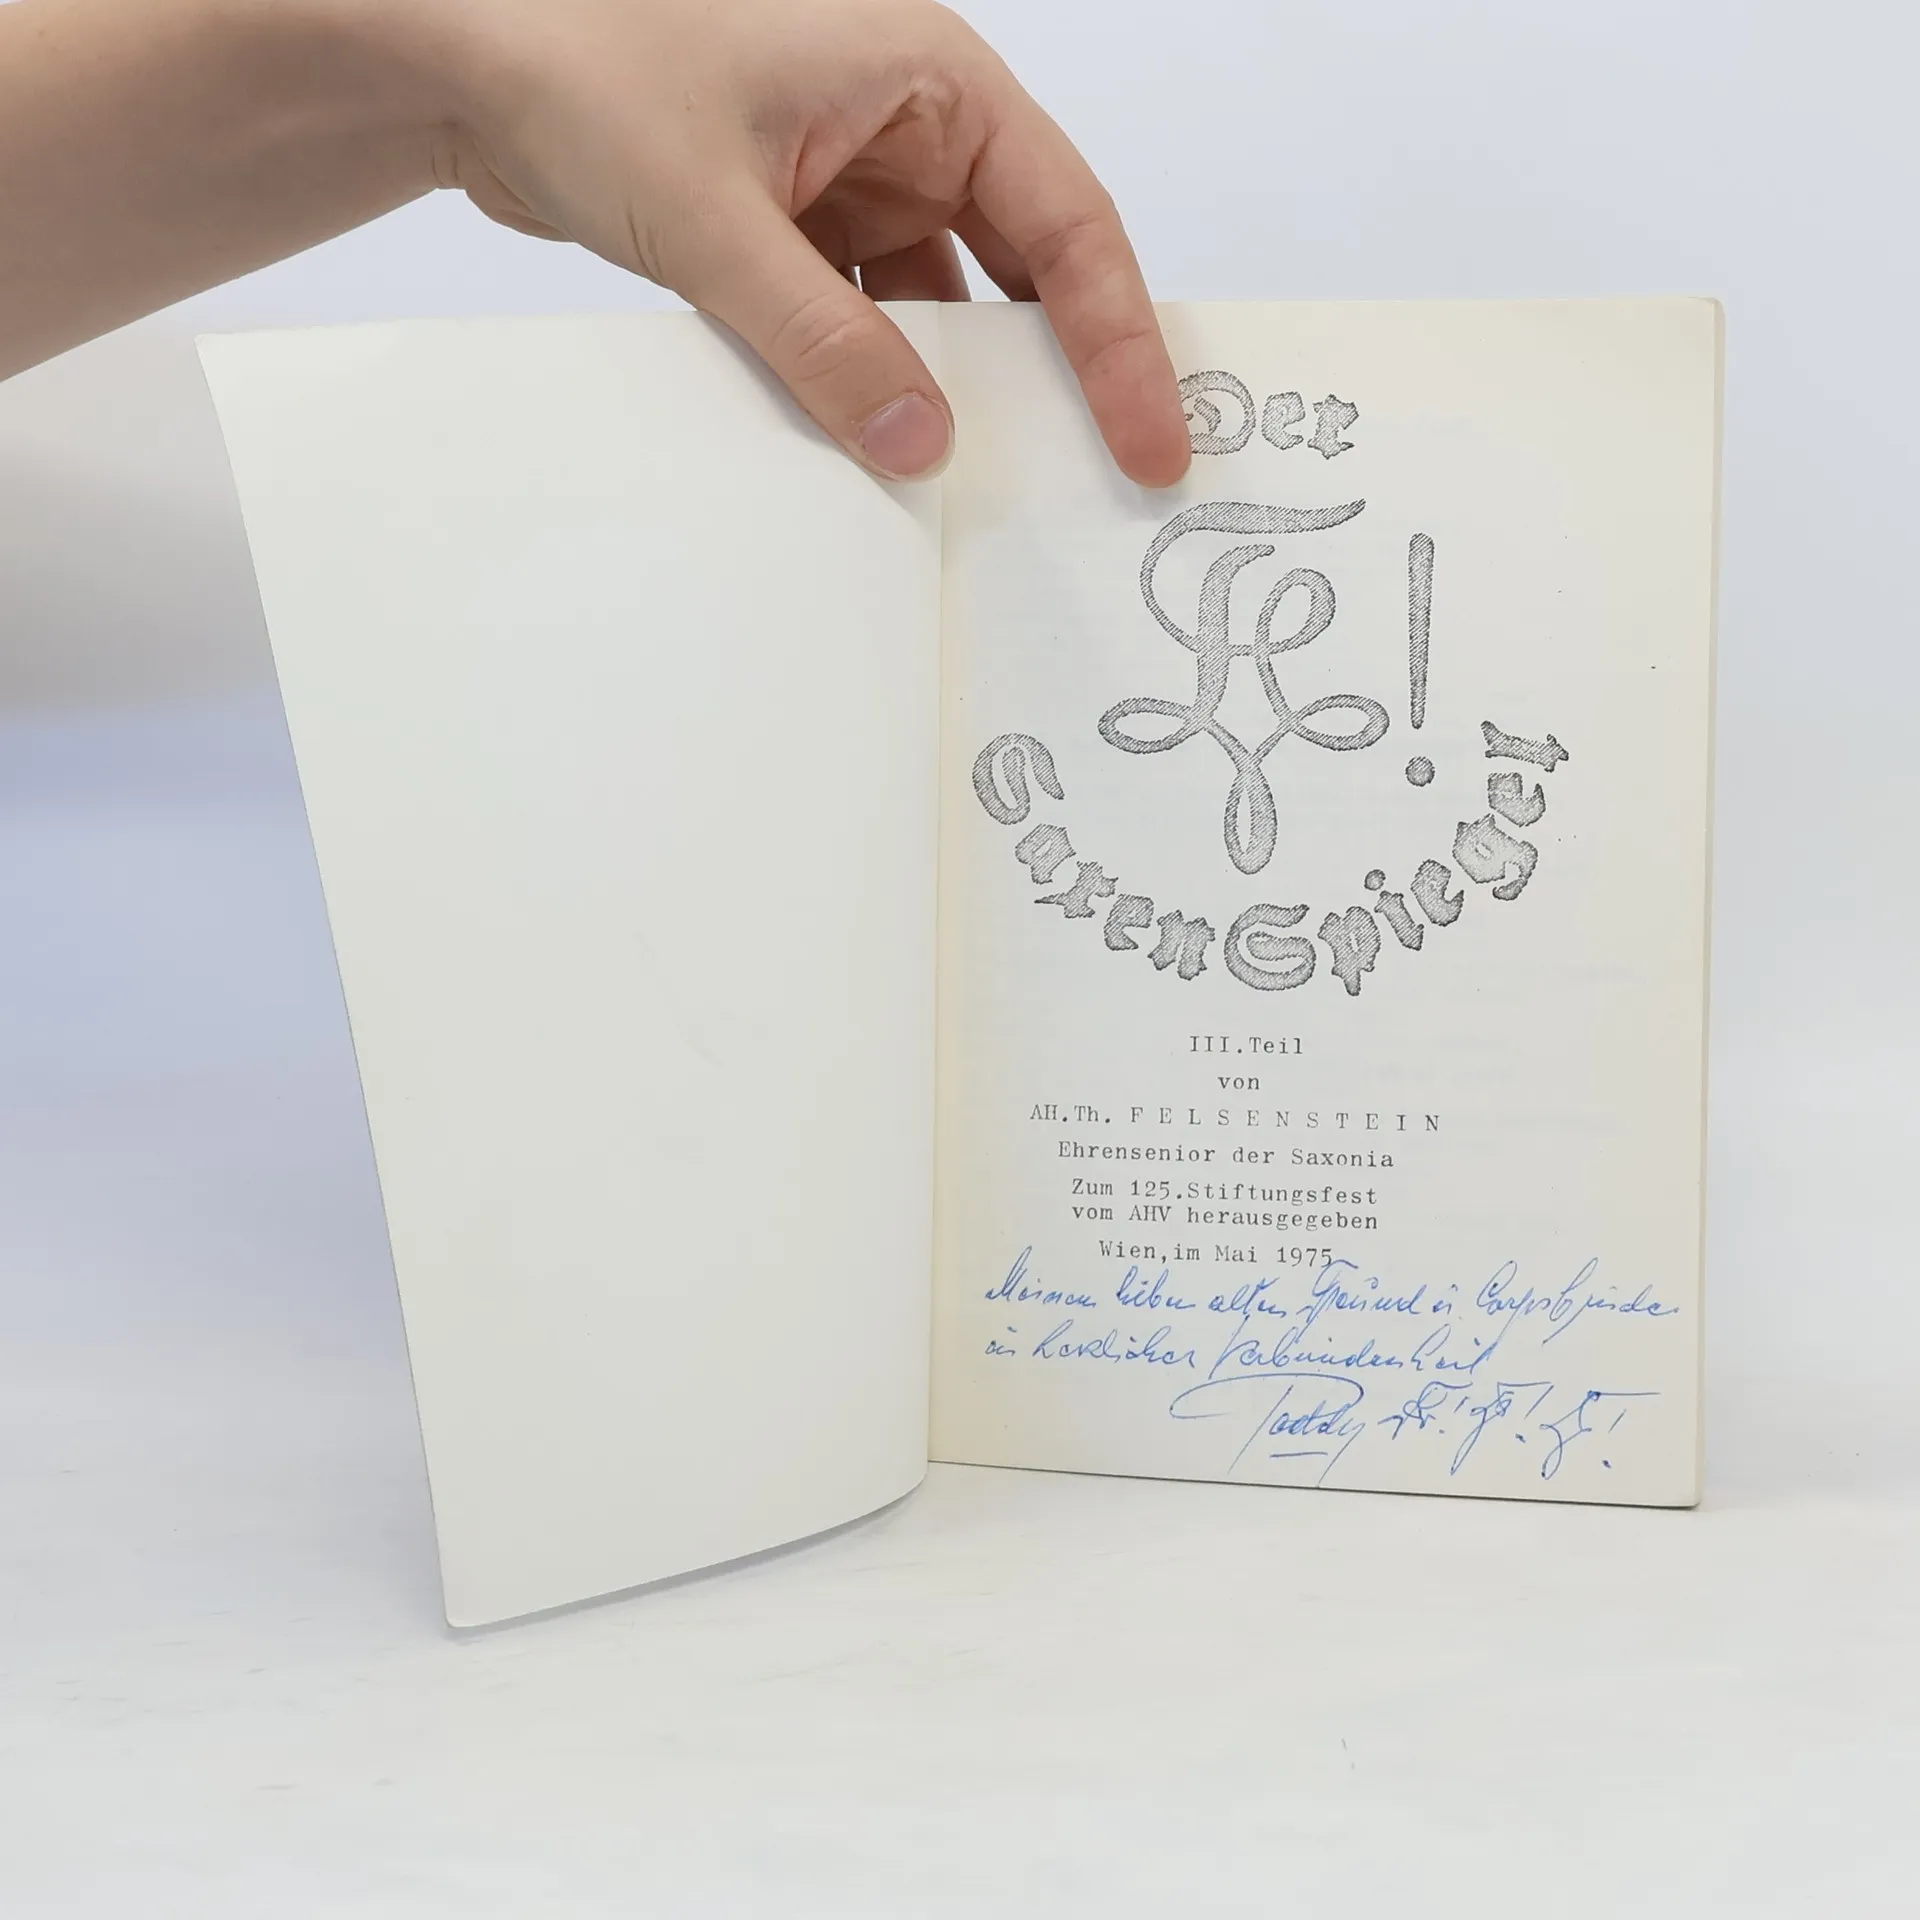 Der
!
SaxenSpiegel
III.Teil
von
AH.Th. F E L S E N S T E I N
Ehrensenior der Saxonia
Zum 125.Stiftungsfest
vom AHV herausgegeben
Wien,im Mai 1975
Meinem lieben alten Freund u. Corpsbruder
in herzlicher Verbundenheit